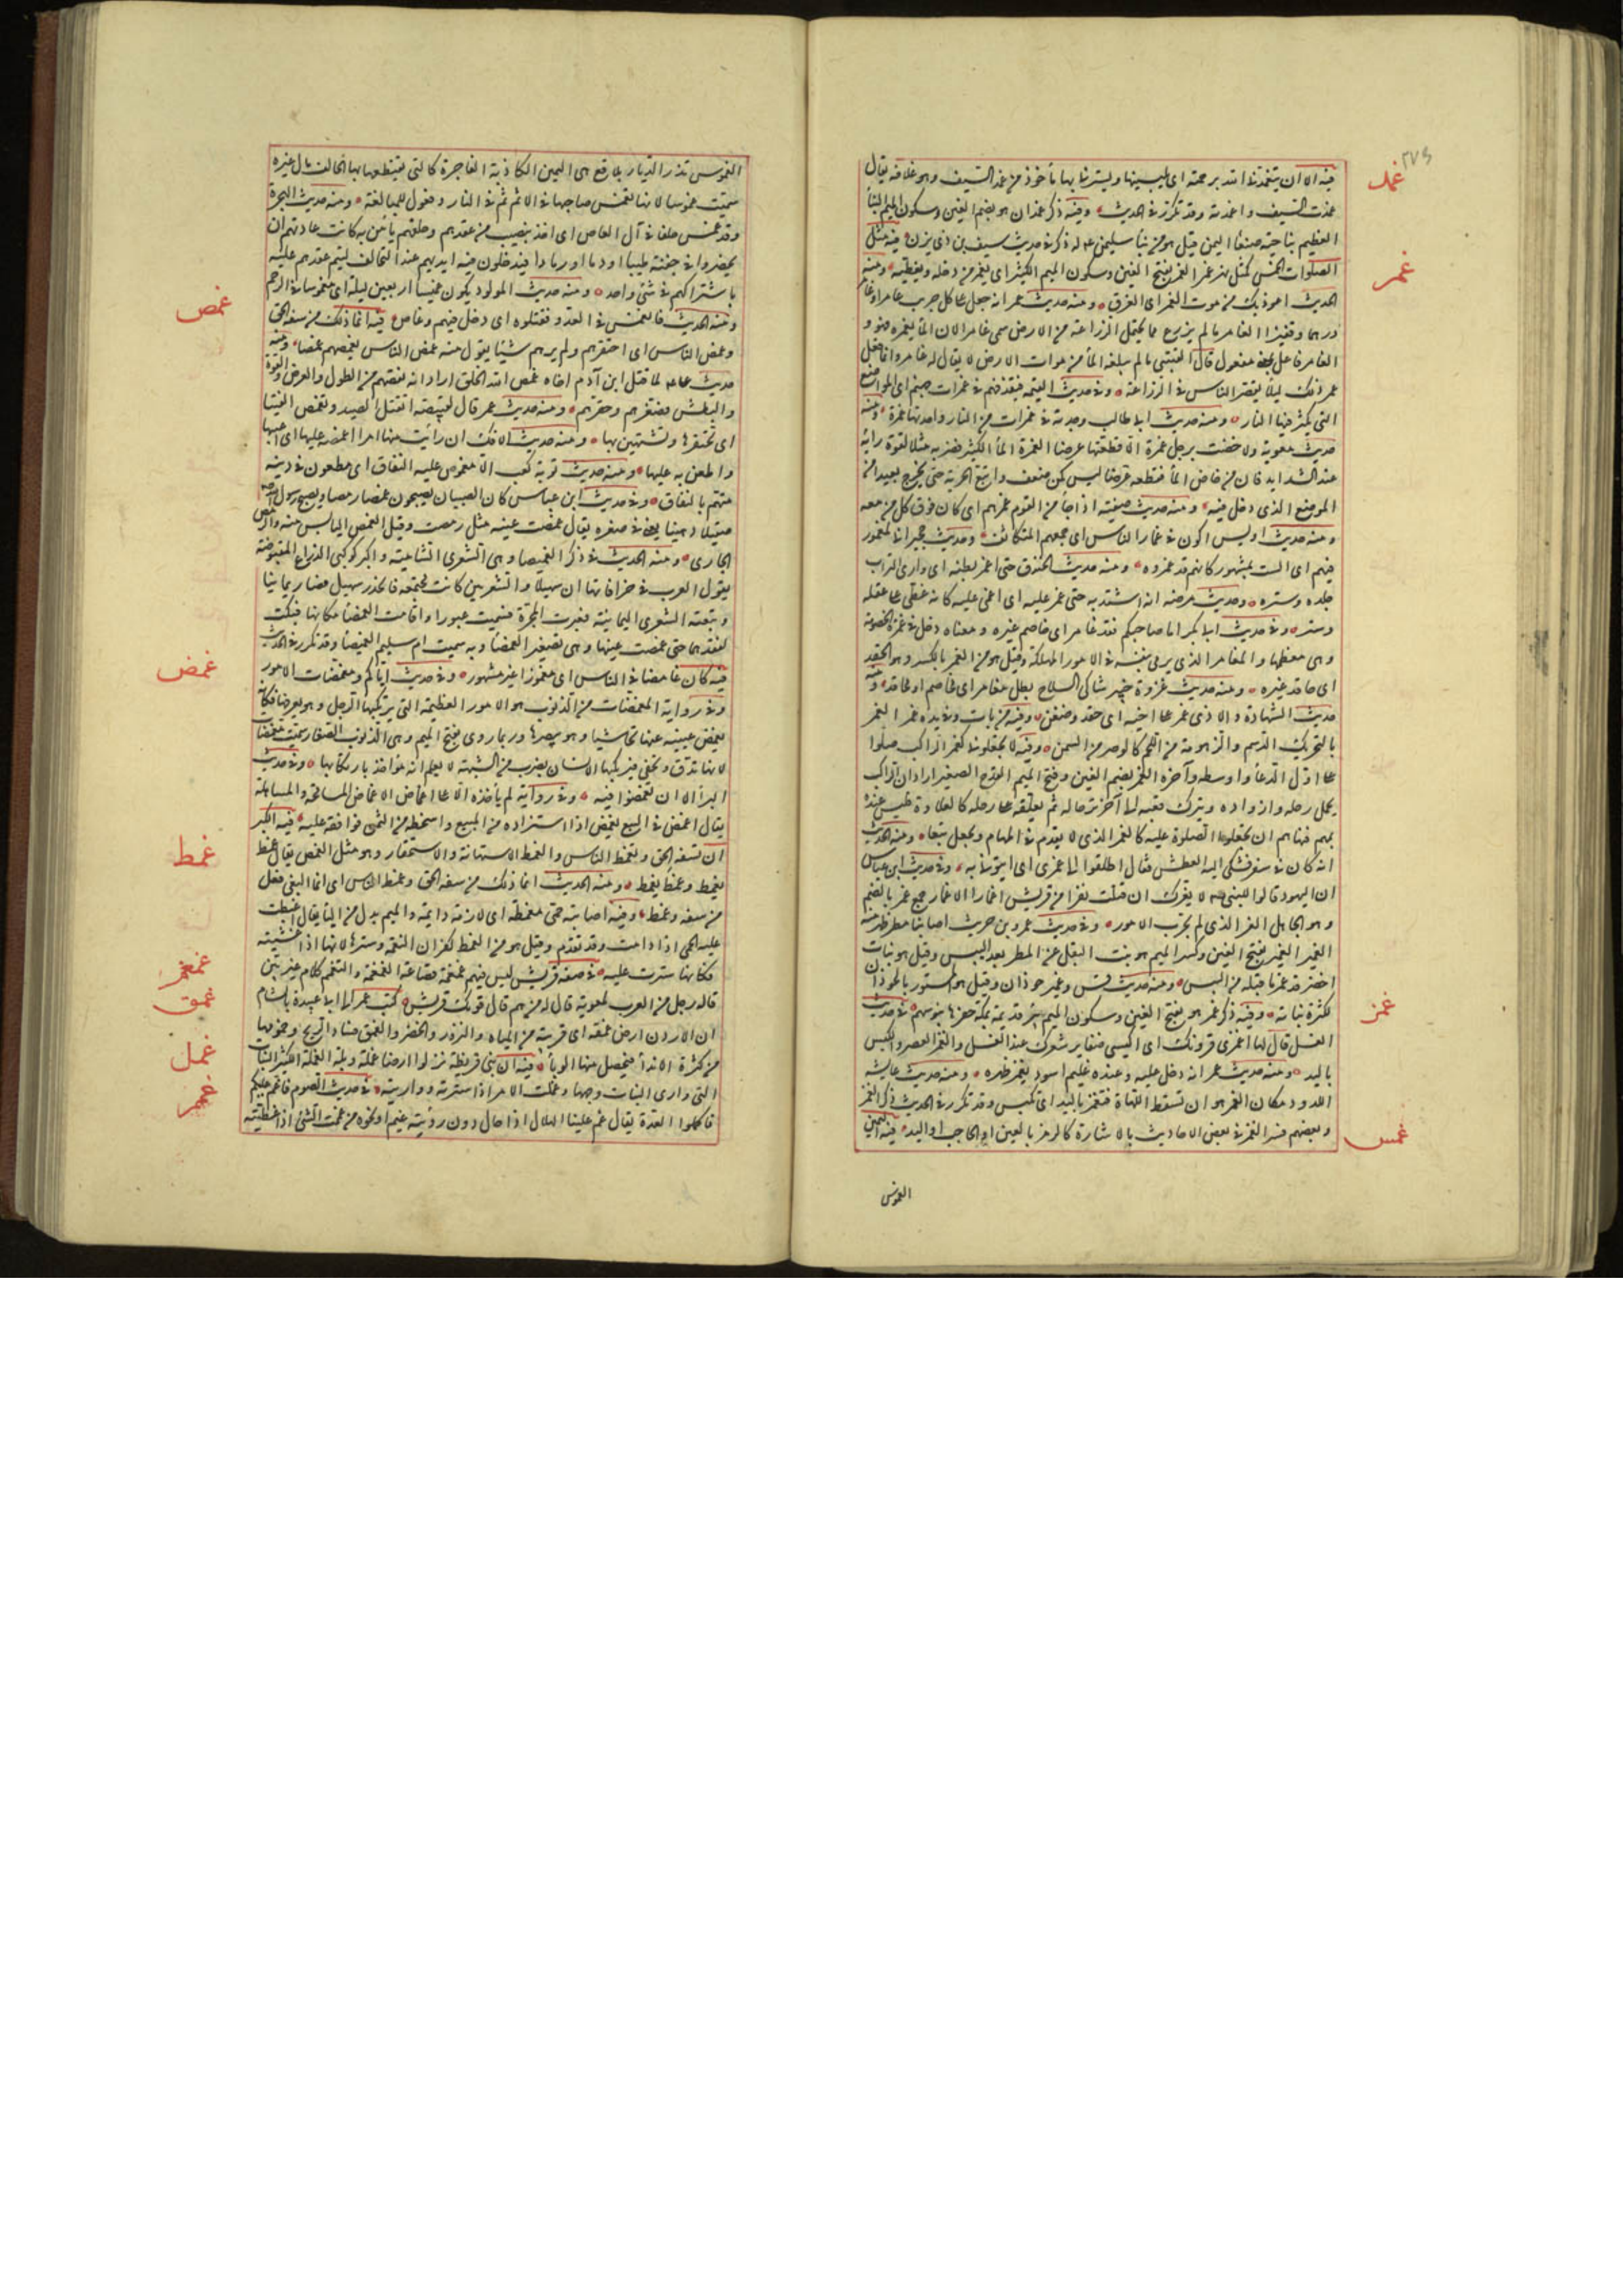 ٢٧٤
غمد
فيه الا ان يتغمدنى الله برحمته اى يلبسنيها ويسترنى بها مأخوذ من غمد السيف وهو غلافه يقال
غمدت السيف واغمدته وقد تكرر فى الحديث وفيه ذكر غمدان هو بضم الغين وسكون الميم البنأ
العظيم بناحية صنعا اليمن قيل هو من بنا سليمن له ذكر فى حديث سيف بن ذى يزن فيه مثل
غمر
الصلوات الخمس كمثل نهر غمر الغمر بفتح الغين وسكون الميم الكثير اى يغمر من دخله ويغطيه ومنه
الحديث اعوذ بك من موت الغمر اى الغرق ومنه حديث عمر انه جعل على كل جريب عامر او غامر
درهما وقفيزا الغامر ما لم يزرع مما يحتمل الزراعة من الارض سمى غامرا لان المأ يغمره فهو و
الغامر فاعل بمعنى مفعول قال القتيبى ما لم يبلغه المأ من موات الارض لا يقال له غامر وانما فعل
عمر ذلك ليلا يقصر الناس فى الزراعة وفى حديث القيمه فيقذفهم فى غمرات جهنم اى المواضع
التى يكثر فيها النار ومنه حديث ابى طالب وجدته فى غمرات من النار واحدتها غمرة ومنه
حديث معوية ولا خضت برجل غمرة الا قطعتها عرضا الغمرة المأ الكثير فضربه مثلا لقوة رأيه
عند الشدايد فان من خاض المأ فقطعه عرضا ليس كمن ضعف واتبع الجرية حتى يخرج بعيدا من
الموضع الذى دخل فيه ومنه حديث صفته اذا جأ من القوم غمرهم اى كان فوق كل من معه
ومنه حديث اويس اكون فى غمار الناس اى جمعهم المتكاثف وحديث حجير انا لمغمور
فيهم اى الست بمشهور كانهم قد غمروه ومنه حديث الخندق حتى اغمر بطنه اى وارى التراب
جلده وستره وحديث مرضه انه اشتد به حتى غمر عليه اى اغمى عليه كانه غطى على عقله
وستر وفى حديث ابى بكر اما صاحبكم فقد غامر اى خاصم غيره ومعناه دخل فى غمرة الخصومة
وهى معظمها والمغامر الذى يرمى بنفسه فى الامور المهلكة وقيل هو من الغمر بالكسر وهو الحقد
اى حاقد غيره ومنه حديث غزوة خيبر شاكى السلاح بطل مغامر اى مخاصم او محاقد ومنه
حديث الشهادة ولا ذى غمر على اخيه اى حقد وضغن وفيه من بات وفى يده غمر الغمر
بالتحريك الدسم والزهومة من اللحم كالوضر من السمن وفيه لا تجعلونى كغمر الراكب صلوا
على اول الدعأ واوسطه وآخره الغمر بضم الغين وفتح الميم القدح الصغير اراد ان الراكب
يحمل رحله وازواده ويترك قعبه الى آخر ترحاله ثم يعلقه على رحله كالعلاوة فليس عنده
بمهم فنهاهم ان يجعلوا الصلوة عليه كالغمر الذى لا يقدم فى المهام ويجعل تبعا ومنه الحديث
انه كان فى سفر فشكى اليه العطش فقال اطلقوا الى غمرى اى ايتونى به وفى حديث ابن عباس
ان اليهود قالوا للنبى لا يغرك ان قتلت نفرا من قريش اغمارا الاغمار جمع غمر بالضم
وهو الجاهل الغر الذى لم يجرب الامور وفى حديث عمرو بن حريث اصابنا مطر ظهر منه
الغمير الغمير بفتح الغين وكسر الميم هو نبت البقل عن المطر بعد اليبس وقيل هو نبات
اخضر قد غمر ما قبله من اليبس ومنه حديث قس وغمير حوذان وقيل هو المستور بالحوذان
غمز
لكثرة نباته وفيه ذكر غمر هو بفتح الغين وسكون الميم بئر قديمة بمكة حفرها بنو سهم فى حديث
الغسل قال لها اغمزى قرونك اى اكبسى ضفاير شعرك عند الغسل والغمز العصر والكبس
باليد ومنه حديث عمر انه دخل عليه وعنده غليم اسود يغمز ظهره ومنه حديث عايشه
اللدود مكان الغمز هو ان تسقط اللهاة فتغمز باليد اى تكبس وقد تكرر فى الحديث ذكر الغمز
غمس
وبعضهم فسر الغمز فى بعض الاحاديث بالاشارة كالرمز بالعين او الحاجب او اليد فيه اليمين
الغموس
الغموس تذر الديار بلاقع هى اليمين الكاذبة الفاجرة كالتى يقتطع بها الحالف مال غيره
سميت غموسا لانها تغمس صاحبها فى الاثم ثم فى النار وفعول للمبالغة ومنه حديث الهجرة
وقد غمس حلفا فى آل العاص اى اخذ بنصيب من عقدهم وحلفهم يأمن به كانت عادتهم ان
يحضروا فى جفنة طيبا او دما او رمادا فيدخلون فيه ايديهم عند التحالف ليتم عقدهم عليه
باشتراكهم فى شئ واحد ومنه حديث المولود يكون غميسا اربعين ليلة اى مغموسا فى الرحم
غمص
ومنه الحديث فانغمس فى العدو فقتلوه اى دخل فيهم وغاص فيه انما ذلك من سفه الحق
وغمص الناس اى احتقرهم ولم يرهم شيئا يقول منه غمص الناس يغمصهم غمصا ومنه
حديث على لما قتل ابن آدم اخاه غمص الله الخلق اراد انه نقصهم من الطول والعرض والقوة
والبطش فصغرهم وحقرهم ومنه حديث عمر قال لقبيصة اتقتل الصيد وتغمص الفتيا
اى تحتقرها وتستهين بها ومنه حديث الافك ان رأيت منها امرا اغمصه عليها اى اعيبها
واطعن به عليها ومنه حديث توبة كعب الا مغموص عليه النفاق اى مطعون فى دينه
متهم بالنفاق وفى حديث ابن عباس كان الصبيان يصبحون غمصا رمصا ويصبح رسول الله
صقيلا دهينا يعنى فى صغره يقال غمصت عينه مثل رمصت وقيل الغمص اليابس منه والرمص
الجارى ومنه الحديث فى ذكر الغميصا وهى الشعرى الشامية واكبر كوكبى الذراع المقبوضة
يقول العرب فى خرافاتها ان سهيلا والشعريين كانت مجتمعة فانحدر سهيل فصار يمانيا
وتبعته الشعرى اليمانية فعبرت المجرة فسميت عبورا واقامت الغمصأ مكانها فبكت
لفقدهما حتى غمصت عينها وهى تصغير الغمصأ وبه سميت ام سليم الغميصا وقد تكرر فى الحديث
غمض
فيه كان غامضا فى الناس اى مغمورا غير مشهور وفى حديث اياكم ومغمضات الامور
وفى رواية المغمضات من الذنوب هو الامور العظيمة التى يركبها الرجل وهو يعرفها فكانه
يغمض عينيه عنها تحاشيا وهو يبصرها وربما روى بفتح الميم وهى الذنوب الصغار سميت مغمضات
لانها تدق وتخفى فيركبها الانسان بضرب من الشبهة لا يعلم انه مؤاخذ بارتكابها وفى حديث
البرأ الا ان تغمضوا فيه وفى رواية لم يأخذه الا على اغماض الاغماض المسامحة والمساهلة
يقال اغمض فى البيع يغمض اذا استزاده من المبيع واستحطه من الثمن فوافقه عليه فيه الكبر
غمط
ان تسفه الحق وتغمط الناس والغمط الاستهانة والاستحقار وهو مثل الغمص يقال غمط
يغمط وغمط يغمط ومنه الحديث انما ذلك من سفه الحق وغمط الناس اى انما البغى فعل
من سفه وغمط وفيه اصابته حمى مغمطة اى لازمة دايمة والميم بدل من البا يقال اغبطت
عليه الحمى اذا دامت وقد تقدم وقيل هو من الغمط كفران النعمة وسترها لانها اذا غشيته
غمغم
فكانها سترت عليه فى صفة قريش ليس فيهم غمغمة قضاعة الغمغمة والتغمغم كلام غير بين
غمق
قاله رجل من العرب لمعوية قال له من هم قال قومك قريش كتب عمر الى ابى عبيدة بالشام
ان الاردن ارض غمقة اى قريبة من المياه والنزوز والخضر والغمق فساد الريح وخمومها
غمل
من كثرة الاندأ فيحصل منها الوبأ فيه ان بنى قريظة نزلوا ارضا غملة وبلة الغملة الكثير النبات
غمم
التى وارى النبات وجهها وغملت الامر اذا سترته وواريته فى حديث الصوم فان غم عليكم
فاكملوا العدة يقال غم علينا الهلال اذا حال دون رؤيته غيم او نحوه من غممت الشئ اذا غطيته